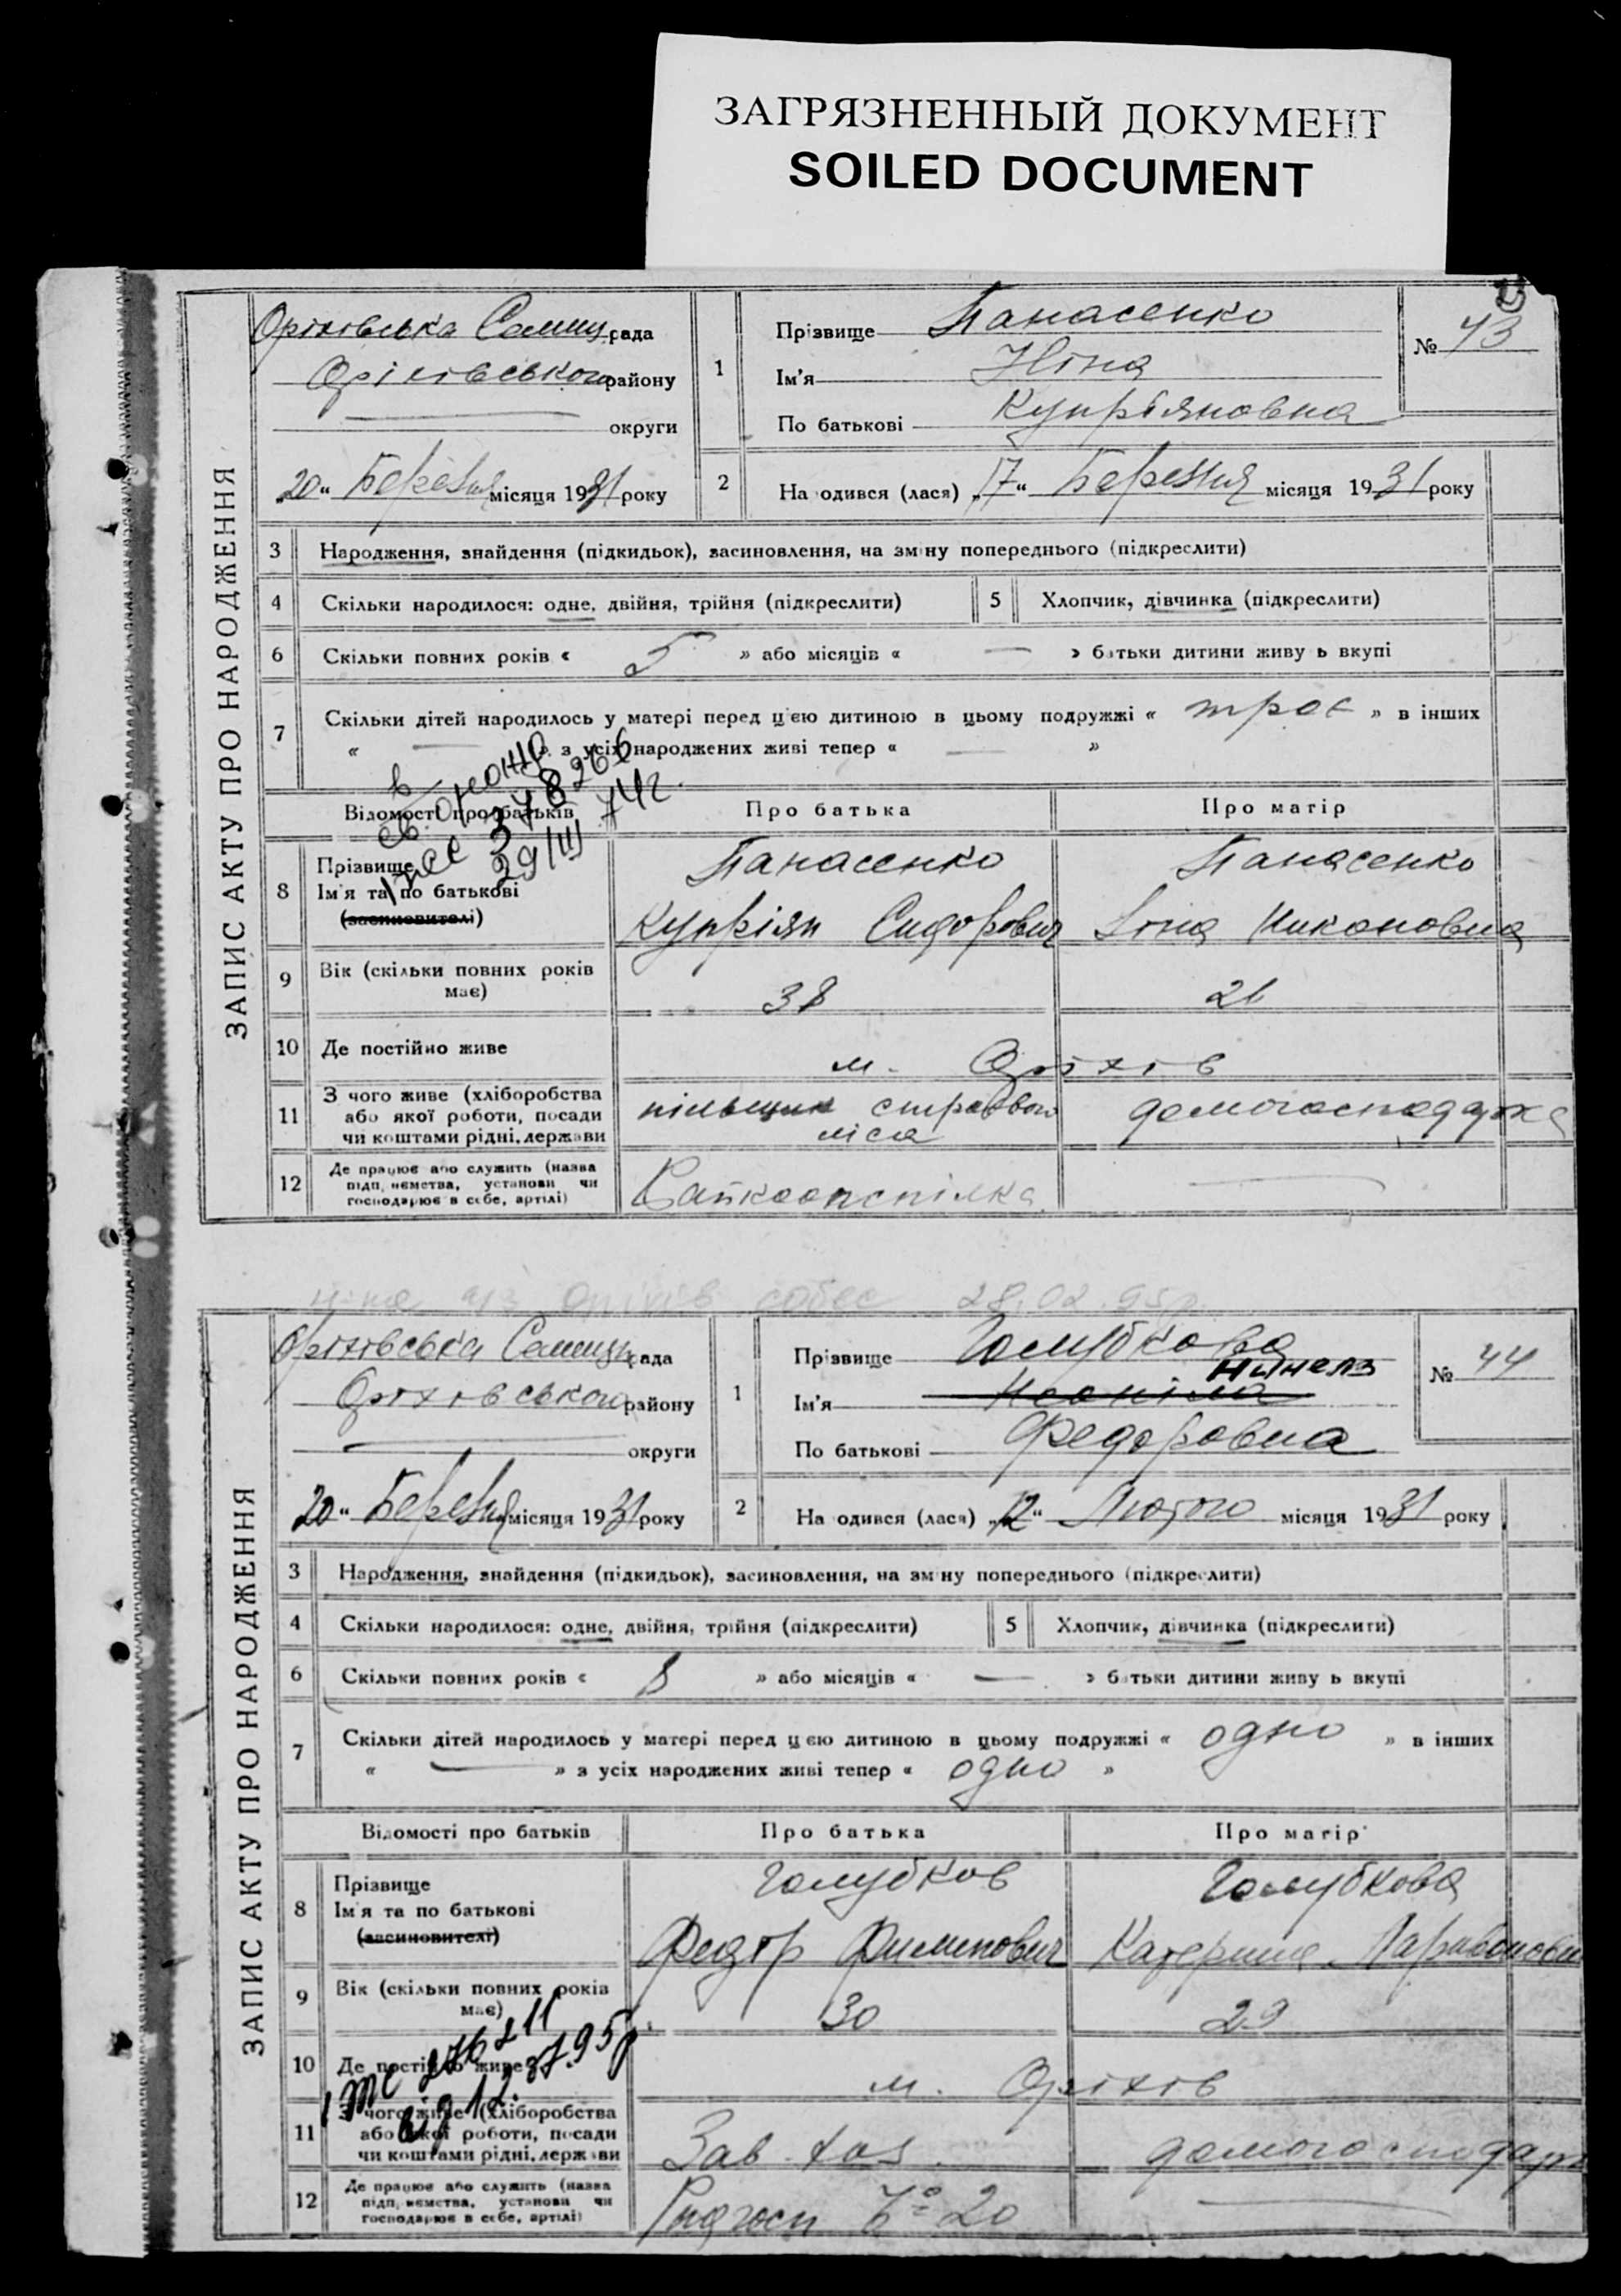 ЗАГРЯЗНЕННЫЙ ДОКУМЕНТ
SOILED DOCUMENT
ЗАПИС АКТУ ПРО НАРОДЖЕННЯ
Оріхівська Селищ рада
Оріхівського району
округи
20 " Березня місяця 1931 року
1
Прізвище Панасенко
Ім'я Ніна
По батькові Купріяновна
№ 43
2
На одився (лася) „17" Березня місяця 1931 року
3 Народження, знайдення (підкидьок), засиновлення, на зміну попереднього (підкреслити)
4 Скільки народилося: одне, двійня, трійня (підкреслити)
5 Хлопчик, дівчинка (підкреслити)
6 Скільки повних років « 5 » або місяців « — » батьки дитини живу ь вкупі
7 Скільки дітей народилось у матері перед цією дитиною в цьому подружжі « троє » в інших
« — » з усіх народжених живі тепер « — »
378266
29/III 74г.
Відомості про батьків Про батька Про матір
8 Прізвище
Ім'я та по батькові
(засиновителі)
Панасенко
Купріян Сидорович
Панасенко
Никоновна
9 Вік (скільки повних років має)
38
10 Де постійно живе
м. Оріхів
11 З чого живе (хліборобства
або якої роботи, посади
чи коштами рідні, держави
ліса
домогосподарка
12 Де працює або служить (назва
підп, иємства, установи чи
господарює в себе, артілі)
—
Оріхів собес 28.02.95р
ЗАПИС АКТУ ПРО НАРОДЖЕННЯ
Оріхівська Селищ рада
Оріхівського району
округи
20 " Березня місяця 1931 року
1
Прізвище Голубкова
Нинелз
Ім'я Неоніла
По батькові Федоровна
№ 44
2
На одився (лася) „12" Лютого місяця 1931 року
3 Народження, знайдення (підкидьок), засиновлення, на зміну попереднього (підкреслити)
4 Скільки народилося: одне, двійня, трійня (підкреслити)
5 Хлопчик, дівчинка (підкреслити)
6 Скільки повних років « 8 » або місяців « — » батьки дитини живу ь вкупі
7 Скільки дітей народилось у матері перед цією дитиною в цьому подружжі « одно » в інших
« — » з усіх народжених живі тепер « одно »
Відомості про батьків Про батька Про матір
8 Прізвище
Ім'я та по батькові
(засиновителі)
Голубков
Федір Филипович
Голубкова
Катерина
9 Вік (скільки повних років має)
30
29
10 Де постійно живе
м. Оріхів
11 З чого живе (хліборобства
або якої роботи, посади
чи коштами рідні, держави
Зав. хоз.
домогосподарк
12 Де працює або служить (назва
підп, иємства, установи чи
господарює в себе, артілі)
Радгосп № 20
—